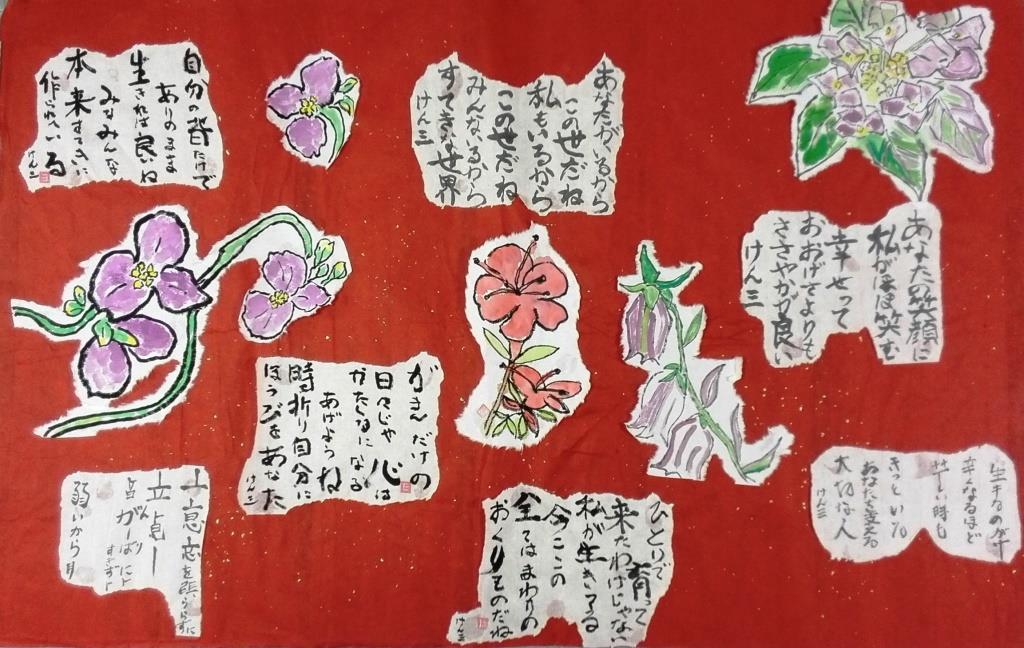 自分の背たけで
ありのまま
生きれば良いね
みなみんな
本来すてきに
作られている
けん三
あなたがいるから
この世だね
私もいるから
この世だね
みんないるから
すてきな世界
けん三
あなたの笑顔に
私がほほ笑む
幸せって
おおげさよりも
ささやかが良い
けん三
がまんだけの
日々じゃ心は
かたくなになる
あげようね
時折り自分に
ほうびをあなた
けん三
弱いから
ひとりで育って
来たわけじゃない
私が生きてる
今ここの
全てはまわりの
おくりものだね
けん三
生きるのが
辛くなるほど
苦しい時も
きっといる
あなたを支える
大切な人
けん三